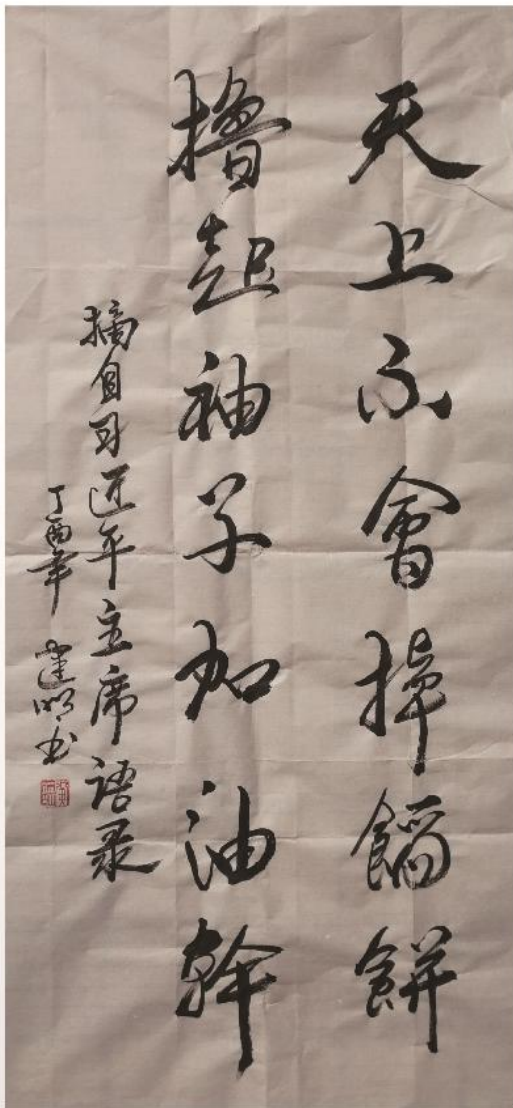 天上不會掉餡餅
擼起袖子加油幹
摘自习近平主席语录
丁酉年 建明书